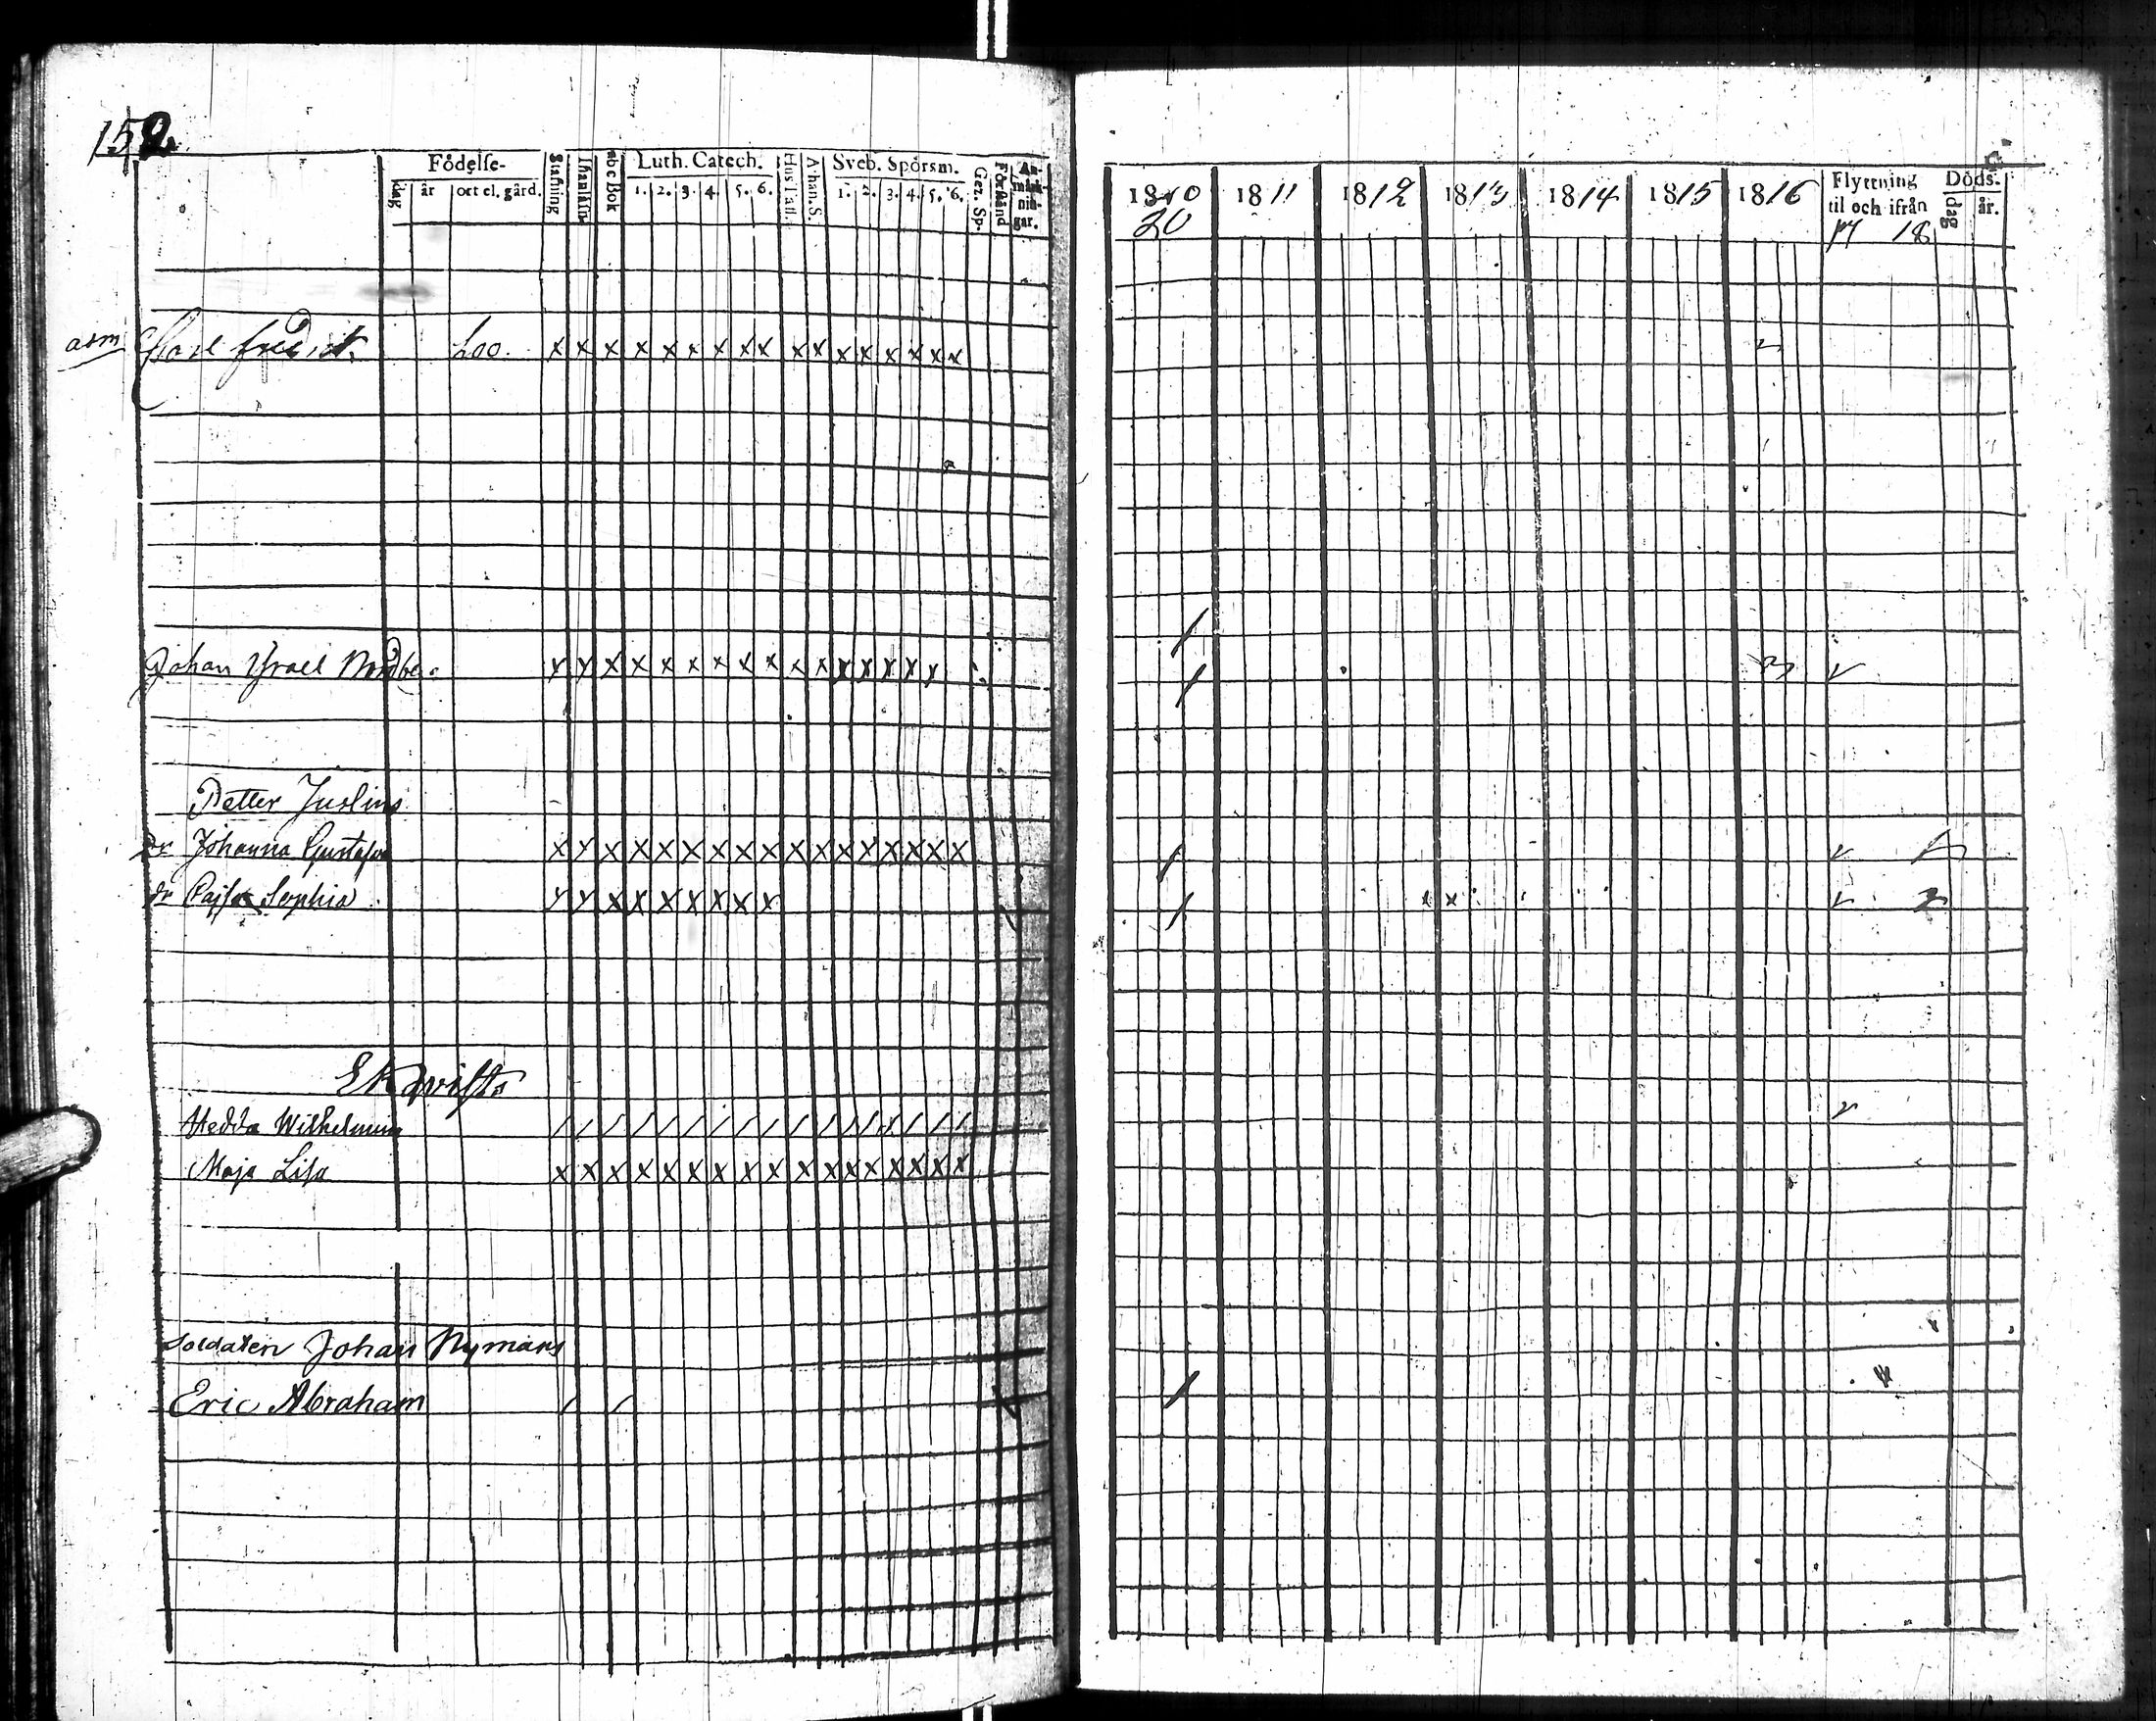 152
Födelse-
dag år ort el. gård.
Stafning
abc Bok
Luth. Catech.
1. 2. 3. 4. 5. 6.
Hus Tafl.
Athan. S.
Sveb. Spörsm.
1. 2. 3. 4. 5. 6.
Gez. Sp.
Förstånd
An-
märk-
nin-
gar.
Carl Loo. x x x x x x x x x x x x x x x x x
Johan Israel x x x x x x x x x x x x x x x x
Petter Juslins
dr Johanna Gustafva x x x x x x x x x x x x x x x x x
dr Cajsa Sophia x x x x x x x x x
Hedda Wilhelmina / / / / / / / / / / / / / / / / /
Maja Lisa x x x x x x x x x x x x x x x x x
Soldaten Johan Nymans
Eric Abraham / /
1810 1811 1812 1813 1814 1815 1816
20
Flyttning
til och ifrån
17 18
Döds-
dag år.